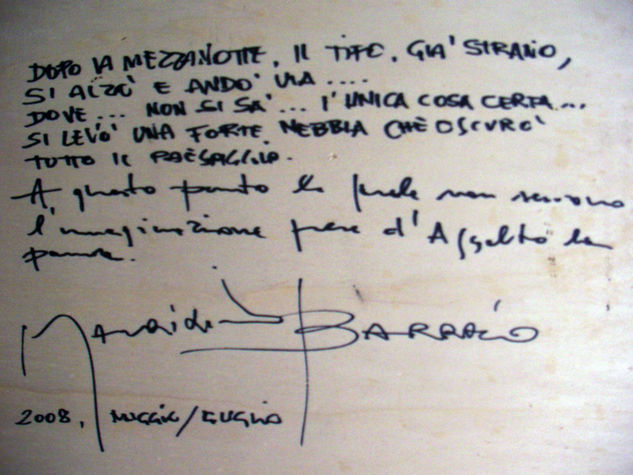 DOPO LA MEZZANOTTE, IL TIPO, GIA' STRANO,
SI ALZO' E ANDO' VIA ....
DOVE ... NON SI SA' ... L'UNICA COSA CERTA ...
SI LEVO' UNA FORTE NEBBIA CHE OSCURO'
TUTTO IL PAESAGGIO.
A questo punto le parole non servono
l'immaginazione prese d'Assalto la
paura.
BARRACO
2008, MAGGIO/LUGLIO